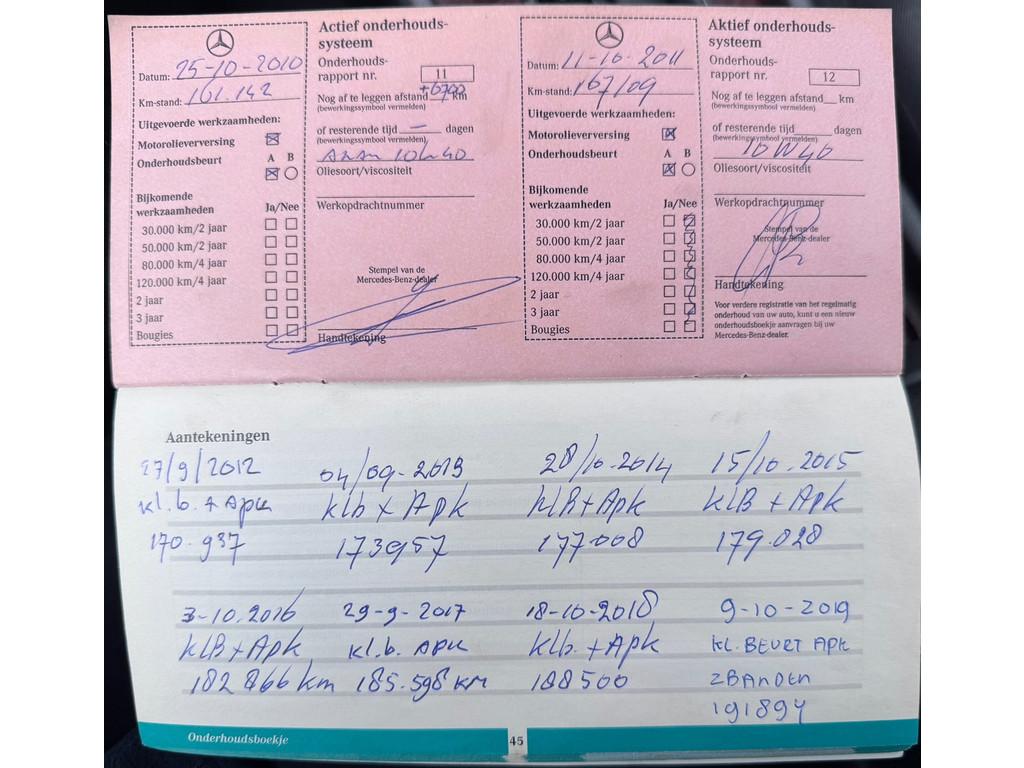 Datum: 25-10-2010
Km-stand: 161.142
Uitgevoerde werkzaamheden:
Motorolieverversing
Onderhoudsbeurt A B
Bijkomende
werkzaamheden Ja/Nee
30.000 km/2 jaar
50.000 km/2 jaar
80.000 km/4 jaar
120.000 km/4 jaar
2 jaar
3 jaar
Bougies
Actief onderhouds-
systeem
Onderhouds-
rapport nr. 11
+6700
Nog af te leggen afstand km
(bewerkingssymbool vermelden)
of resterende tijd — dagen
(bewerkingssymbool vermelden)
10W40
Oliesoort/viscositeit
Werkopdrachtnummer
Stempel van de
Mercedes-Benz-dealer
Handtekening
Datum: 11-10-2011
Km-stand: 167109
Uitgevoerde werkzaamheden:
Motorolieverversing
Onderhoudsbeurt A B
Bijkomende
werkzaamheden Ja/Nee
30.000 km/2 jaar
50.000 km/2 jaar
80.000 km/4 jaar
120.000 km/4 jaar
2 jaar
3 jaar
Bougies
Aktief onderhouds-
systeem
Onderhouds-
rapport nr. 12
Nog af te leggen afstand km
(bewerkingssymbool vermelden)
of resterende tijd dagen
(bewerkingssymbool vermelden)
10W40
Oliesoort/viscositeit
Werkopdrachtnummer
Stempel van de
Mercedes-Benz-dealer
Handtekening
Voor verdere registratie van het regelmatig
onderhoud van uw auto, kunt u een nieuw
onderhoudsboekje aanvragen bij uw
Mercedes-Benz-dealer.
Aantekeningen
27/9/2012 04/09-2013 28/10-2014 15/10.2015
kl.b. + APK klb + Apk klB + Apk klB + Apk
170.937 173957 177.008 179.028
3-10.2016 29-9-2017 18-10-2018 9-10-2019
klB + Apk kl.b. APK klb. + Apk KL.BEURT APK
182866 km 185.598 KM 188500 2BANDEN
191894
Onderhoudsboekje 45